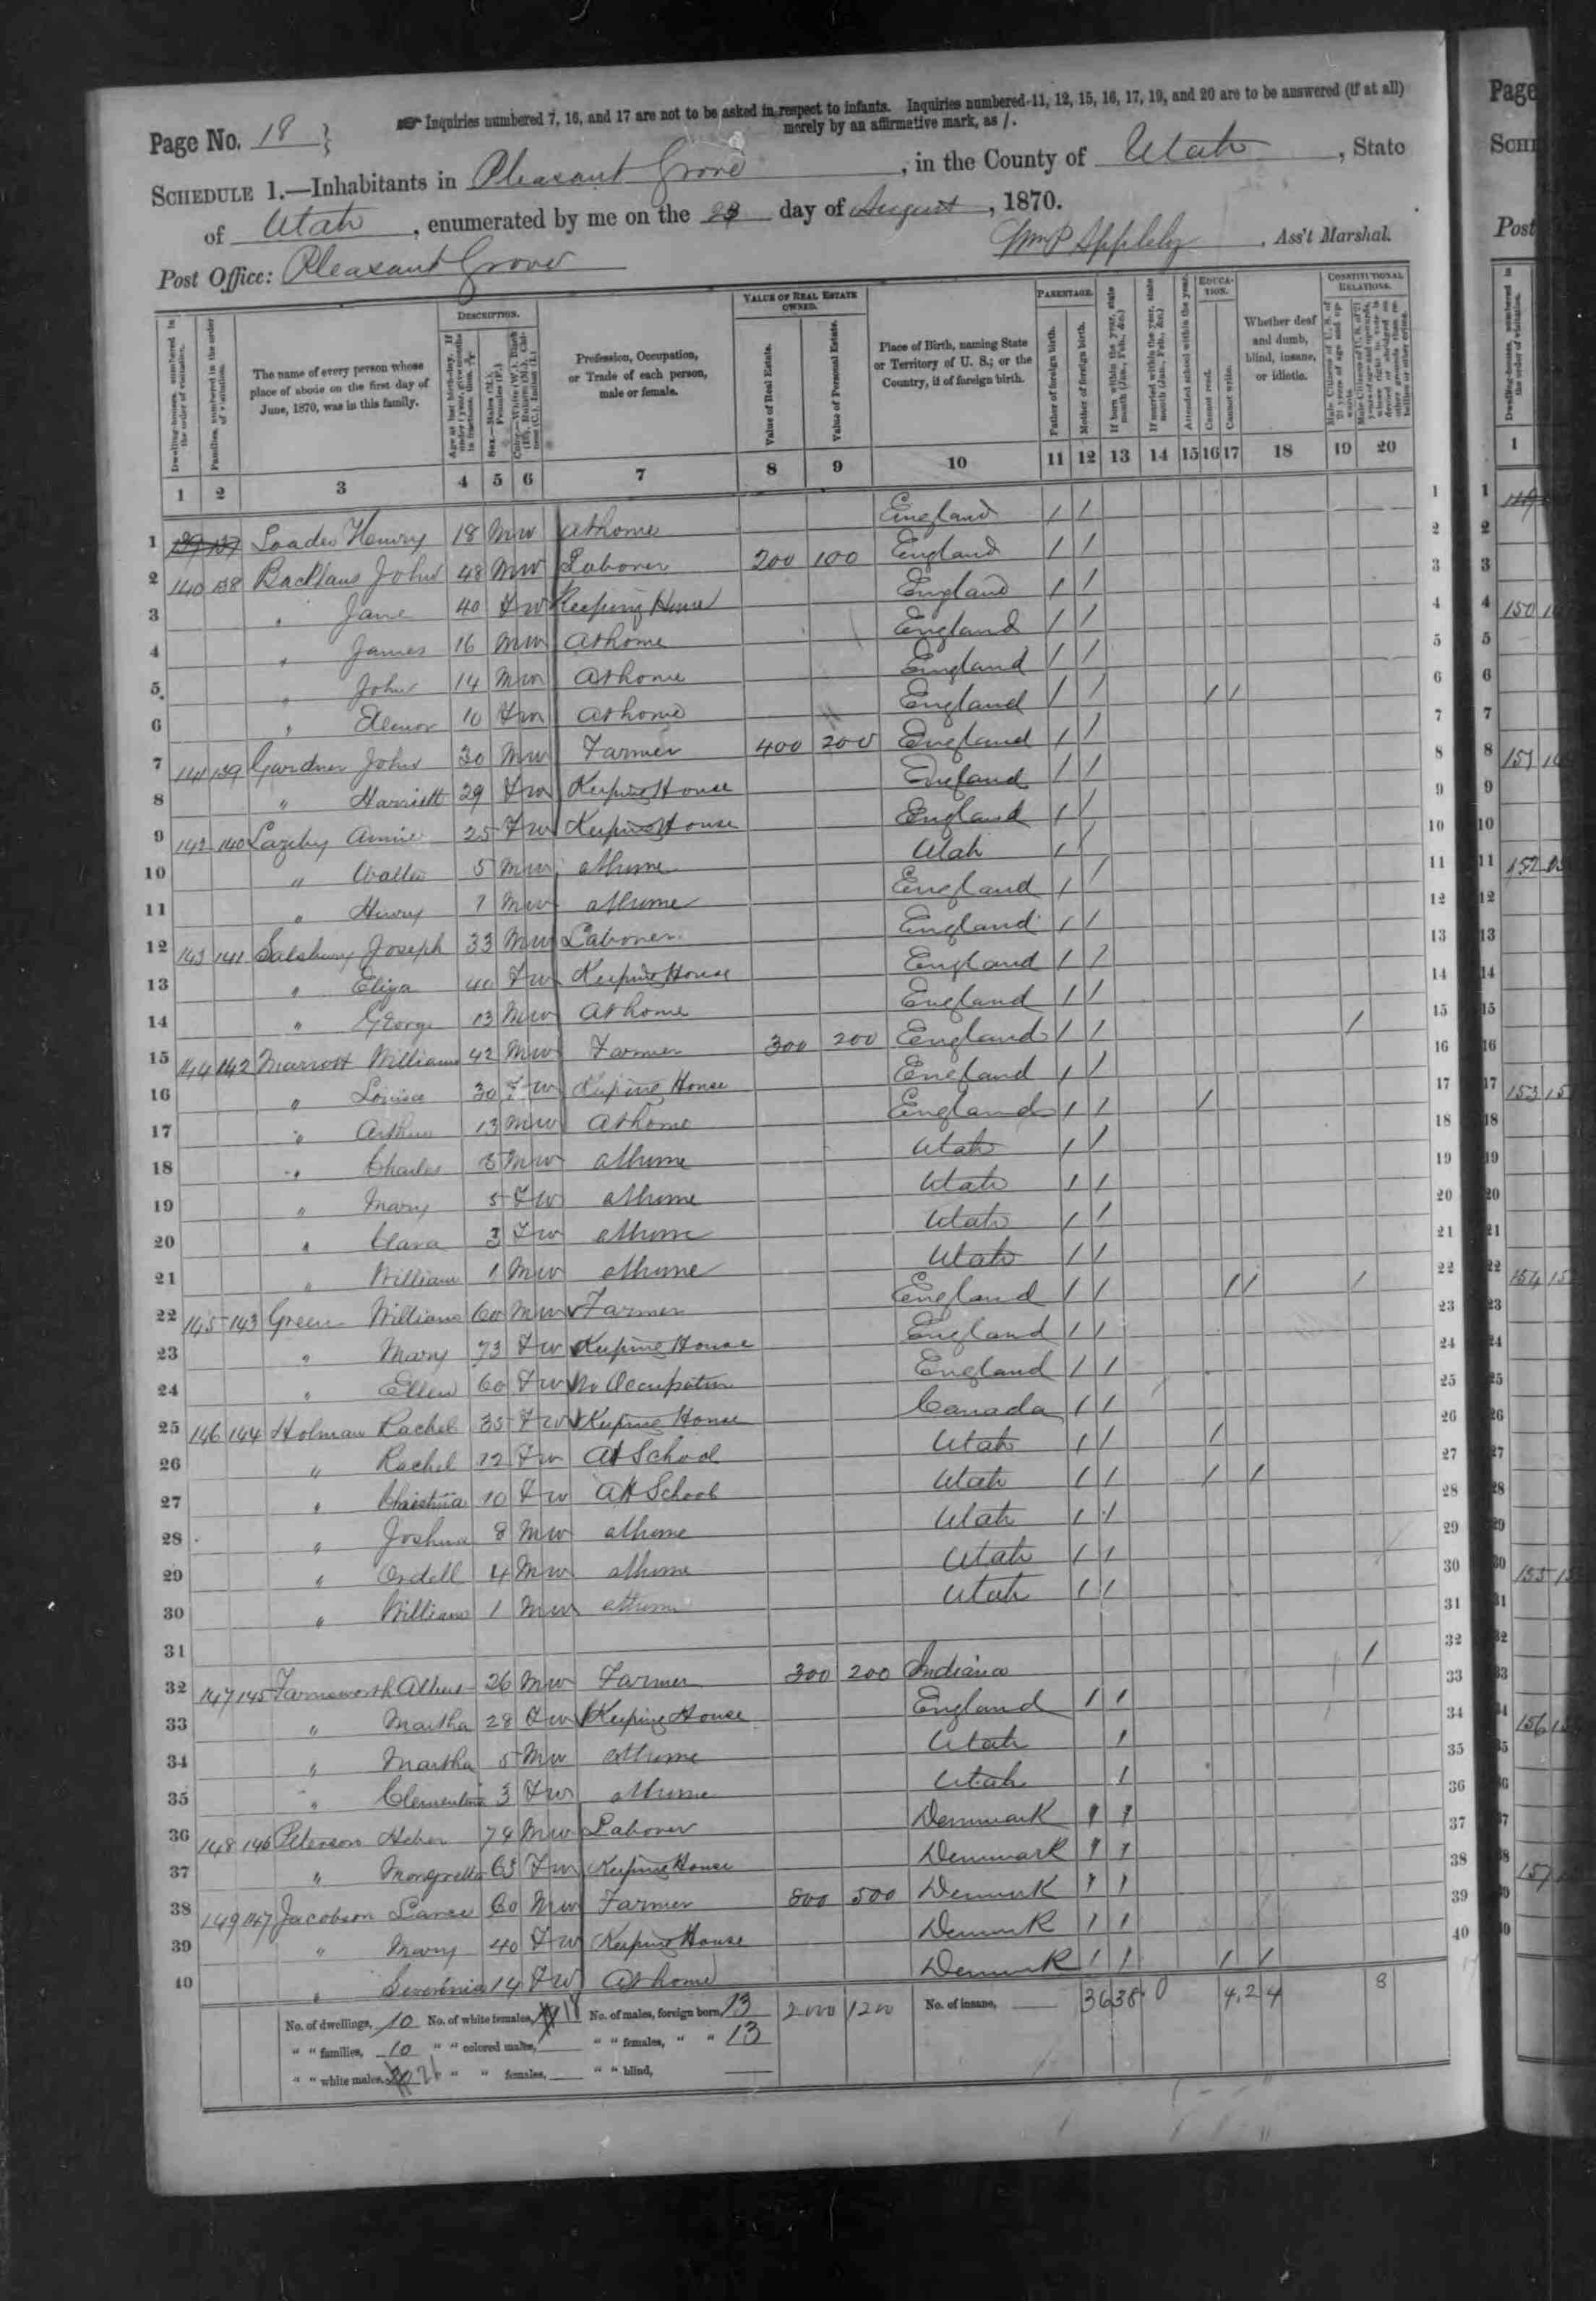 Page No. 18
Inquiries numbered 7, 16, and 17 are not to be asked in respect to infants. Inquiries numbered 11, 12, 15, 16, 17, 19, and 20 are to be answered (if at all)
merely by an affirmative mark, as /.
SCHEDULE 1.—Inhabitants in Pleasant Grove, in the County of Utah, State
of Utah, enumerated by me on the day of August, 1870.
Post Office: Pleasant Grove
Wm P Appleby, Ass't Marshal.
Dwelling-houses, numbered in the order of visitation.
Families, numbered in the order of visitation.
The name of every person whose place of abode on the first day of June, 1870, was in this family.
DESCRIPTION.
Age at last birth-day. If under 1 year, give months in fractions, thus, 3/12
Sex.—Males (M.), Females (F.)
Color.—White (W.), Black (B.), Mulatto (M.), Chinese (C.), Indian (I.)
Profession, Occupation, or Trade of each person, male or female.
VALUE OF REAL ESTATE OWNED.
Value of Real Estate.
Value of Personal Estate.
Place of Birth, naming State or Territory of U. S.; or the Country, if of foreign birth.
PARENTAGE.
Father of foreign birth.
Mother of foreign birth.
If born within the year, state month (Jan., Feb., &c.)
If married within the year, state month (Jan., Feb., &c.)
EDUCATION.
Attended school within the year.
Cannot read.
Cannot write.
Whether deaf and dumb, blind, insane, or idiotic.
CONSTITUTIONAL RELATIONS.
Male Citizens of U. S. of 21 years of age and upwards.
Male Citizens of U. S. of 21 years of age and upwards, whose right to vote is denied or abridged on other grounds than rebellion or other crime.
1 2 3 4 5 6 7 8 9 10 11 12 13 14 15 16 17 18 19 20
1 139 137 Loader Henry 18 M W At home England / / 1
2 140 138 John 48 M W Laborer 200 100 England / / 2
3 " Jane 40 F W Keeping House England / / 3
4 " James 16 M W At home England / / 4
5 " John 14 M W At home England / / 5
6 " Elenor 10 F W At home England / / / / 6
7 141 139 Gardner John 30 M W Farmer 400 200 England / / 7
8 " Harriett 29 F W Keeping House England / / 8
9 142 140 Lazeby Annie 25 F W Keeping House England / / 9
10 " Walter 5 M W at home Utah / / 10
11 " Henry M W at home England / / 11
12 143 141 Salsbury Joseph 33 M W Laborer England / / 12
13 " Eliza 40 F W Keeping House England / / 13
14 " George 13 M W At home England / / 14
15 144 142 Marrott William 42 M W Farmer 300 200 England / / / 15
16 " Louisa 30 F W Keeping House England / / 16
17 " Arthur 13 M W At home England / / / 17
18 " Charles M W at home Utah / / 18
19 " Mary 5 F W at home Utah / / 19
20 " Clara 3 F W at home Utah / / 20
21 " William 1 M W at home Utah / / 21
22 145 143 Green William 60 M W Farmer England / / / / / 22
23 " Mary 73 F W Keeping House England / / 23
24 " Ellen 60 F W No Occupation England / / 24
25 146 144 Holman Rachel 35 F W Keeping House Canada / / 25
26 " Rachel 12 F W At School Utah / / / 26
27 " Christina 10 F W At School Utah / / / / 27
28 " Joshua 8 M W at home Utah / / 28
29 " Ordell 4 M W at home Utah / / 29
30 " William 1 M W at home Utah / / 30
31 31
32 147 145 Farnsworth Albert 26 M W Farmer 300 200 Indiana / 32
33 " Martha 28 F W Keeping House England / / 33
34 " Martha 5 M W at home Utah / 34
35 " Clementina 3 F W at home Utah / 35
36 148 146 Peterson 74 M W Laborer Denmark / / 36
37 " 63 F W Keeping House Denmark / / 37
38 149 147 Jacobson 60 M W Farmer 800 500 Denmark / / 38
39 " Mary 40 F W Keeping House Denmark / / 39
40 " 14 F W At home Denmark / / / / 40
No. of dwellings, 10 No. of white females, 18 No. of males, foreign born 13 2000 1200 No. of insane, 36 38 0 4 2 4 8
" " families, 10 " " colored males, " " females, " " 13
" " white males, 21 " " females, " " blind,
Page
SCHE
Post
Dwelling-houses, numbered in the order of visitation.
1
149
150
151
152
153
154
155
156
157